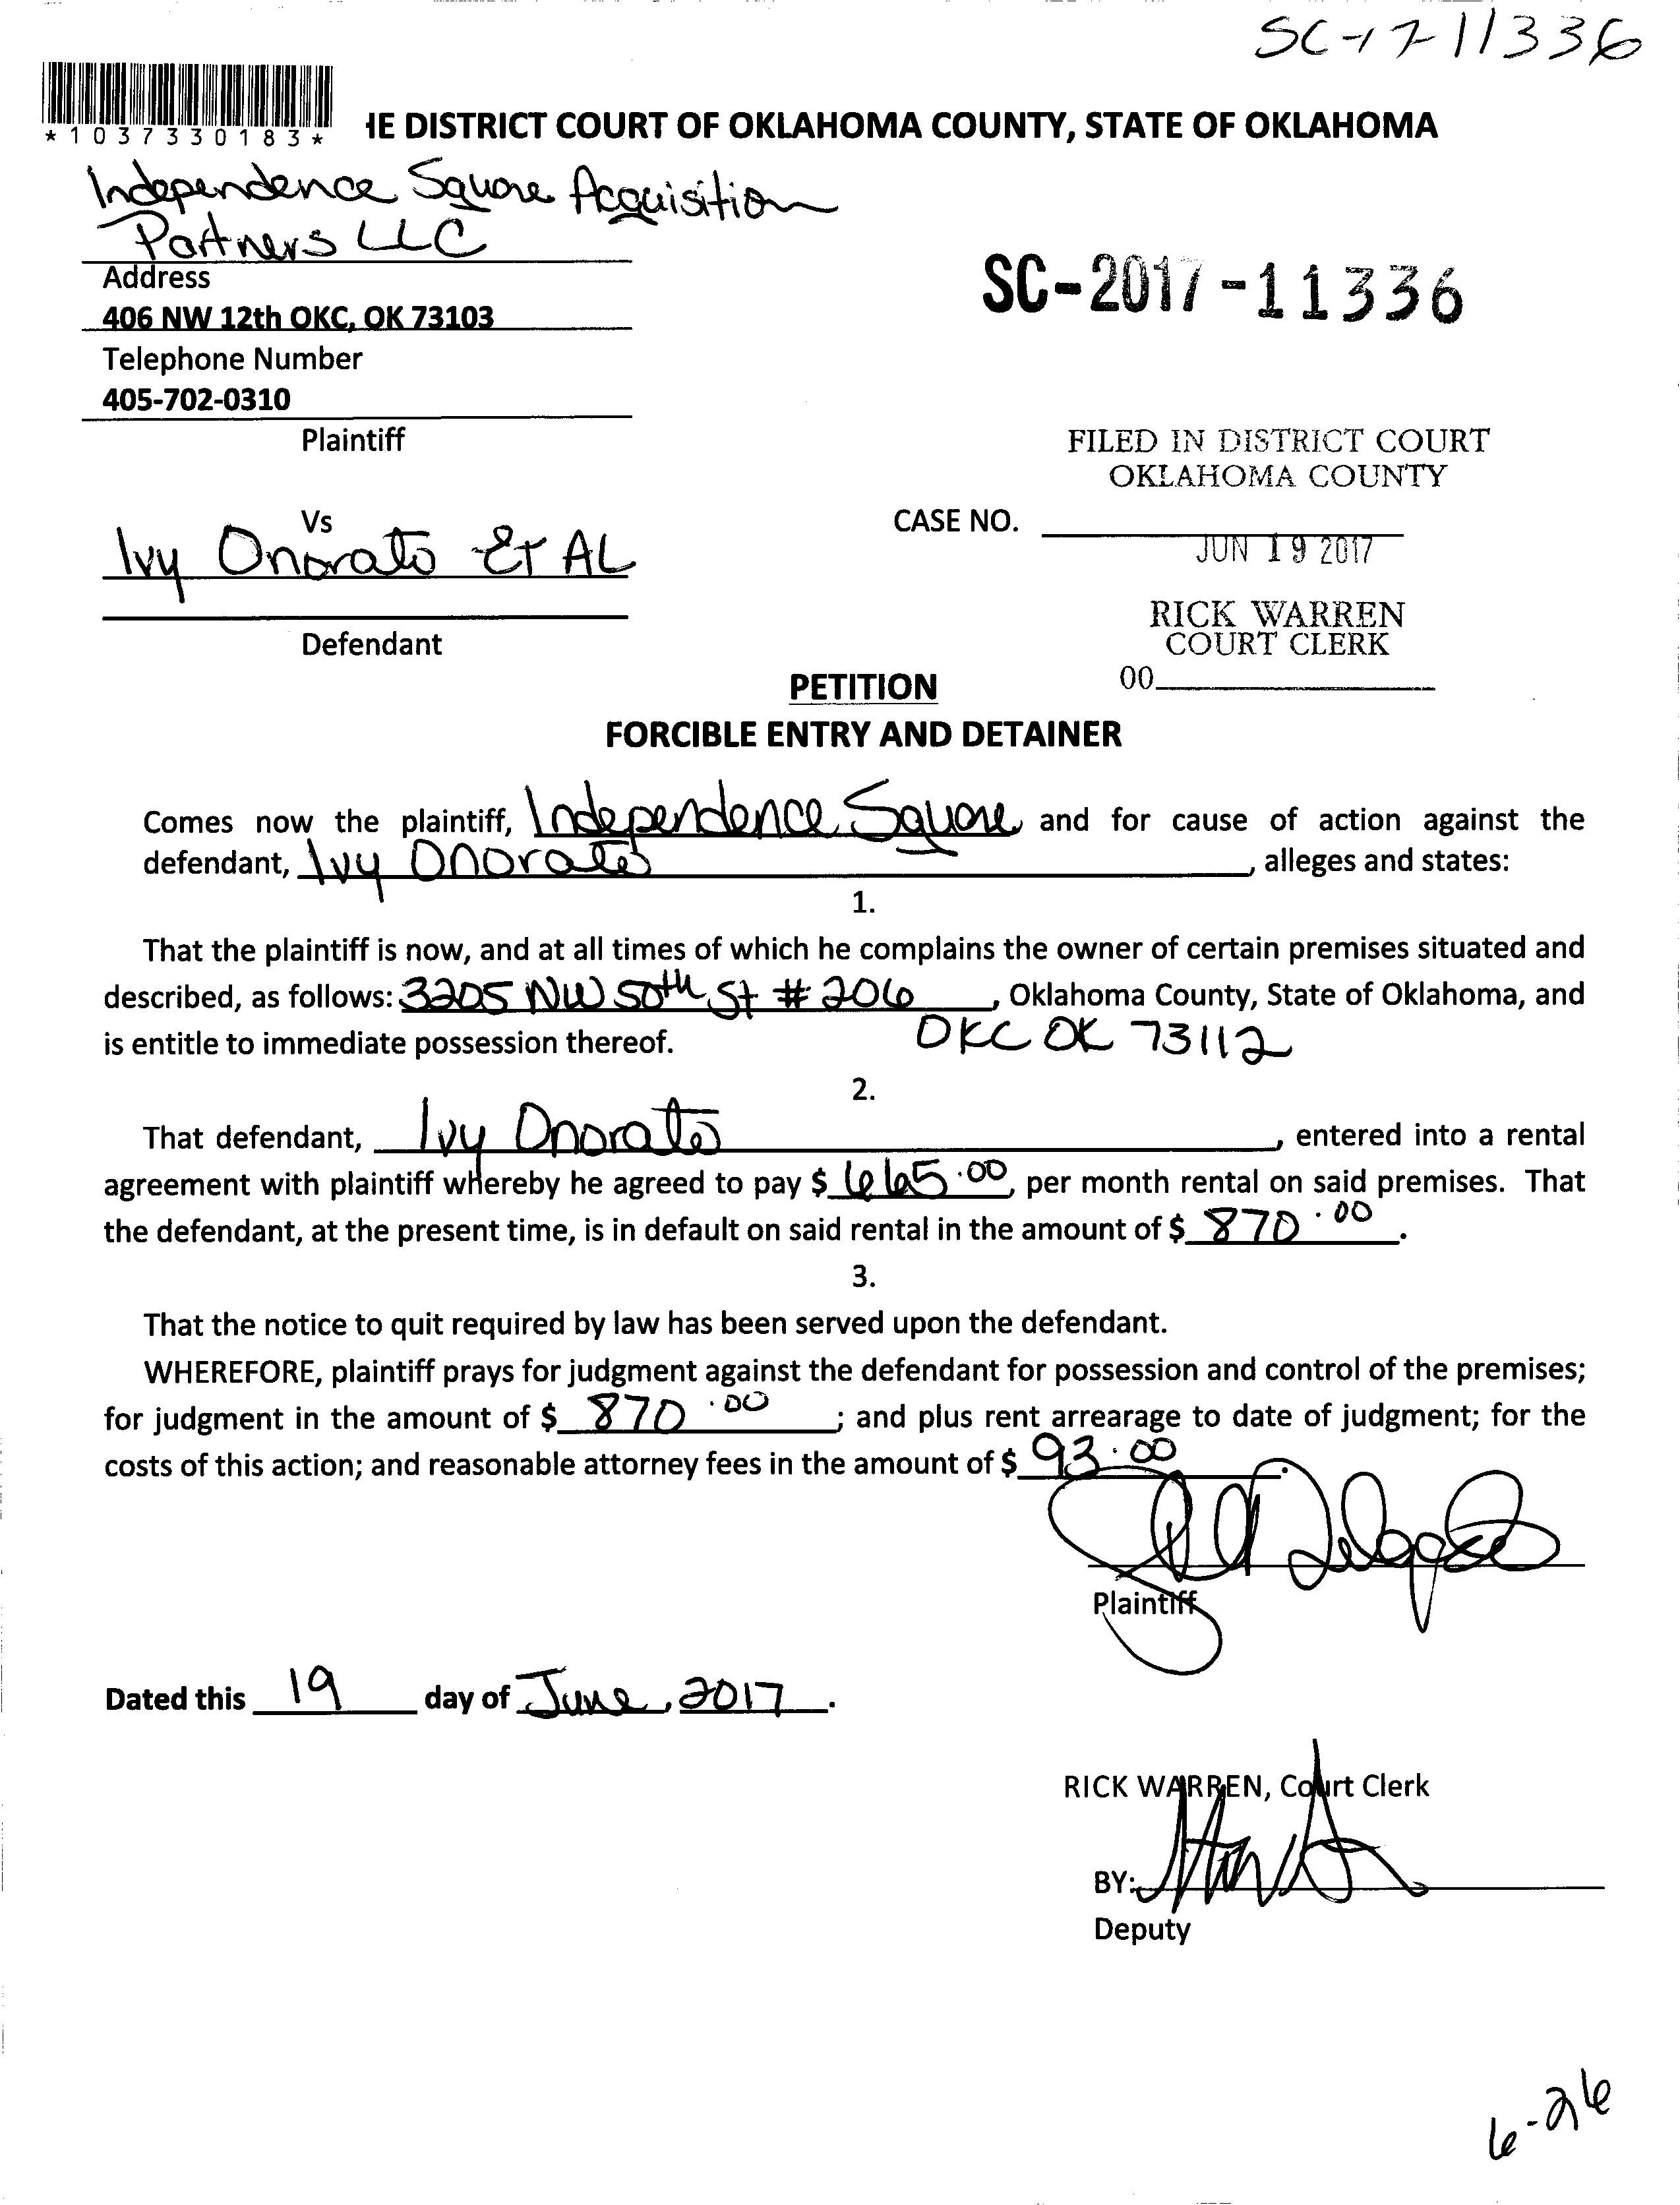 SC-17-11336
*1037330183*
IE DISTRICT COURT OF OKLAHOMA COUNTY, STATE OF OKLAHOMA
Independence Square Acquisition
Partners LLC
Address
406 NW 12th OKC, OK 73103
SC-2017-11336
Telephone Number
405-702-0310
Plaintiff
FILED IN DISTRICT COURT
OKLAHOMA COUNTY
Vs
CASE NO.
Ivy Onorato Et AL
JUN 19 2017
RICK WARREN
COURT CLERK
Defendant
00
PETITION
FORCIBLE ENTRY AND DETAINER
Comes now the plaintiff, Independence Square and for cause of action against the
defendant, Ivy Onorato, alleges and states:
1.
That the plaintiff is now, and at all times of which he complains the owner of certain premises situated and
described, as follows: 3205 NW 50th St # 206, Oklahoma County, State of Oklahoma, and
is entitle to immediate possession thereof. OKC OK 73112
2.
That defendant, Ivy Onorato, entered into a rental
agreement with plaintiff whereby he agreed to pay $ 665.00, per month rental on said premises. That
the defendant, at the present time, is in default on said rental in the amount of $ 870.00.
3.
That the notice to quit required by law has been served upon the defendant.
WHEREFORE, plaintiff prays for judgment against the defendant for possession and control of the premises;
for judgment in the amount of $ 870.00; and plus rent arrearage to date of judgment; for the
costs of this action; and reasonable attorney fees in the amount of $ 93.00.
Plaintiff
Dated this 19 day of June, 2017.
RICK WARREN, Court Clerk
BY:
Deputy
6-26